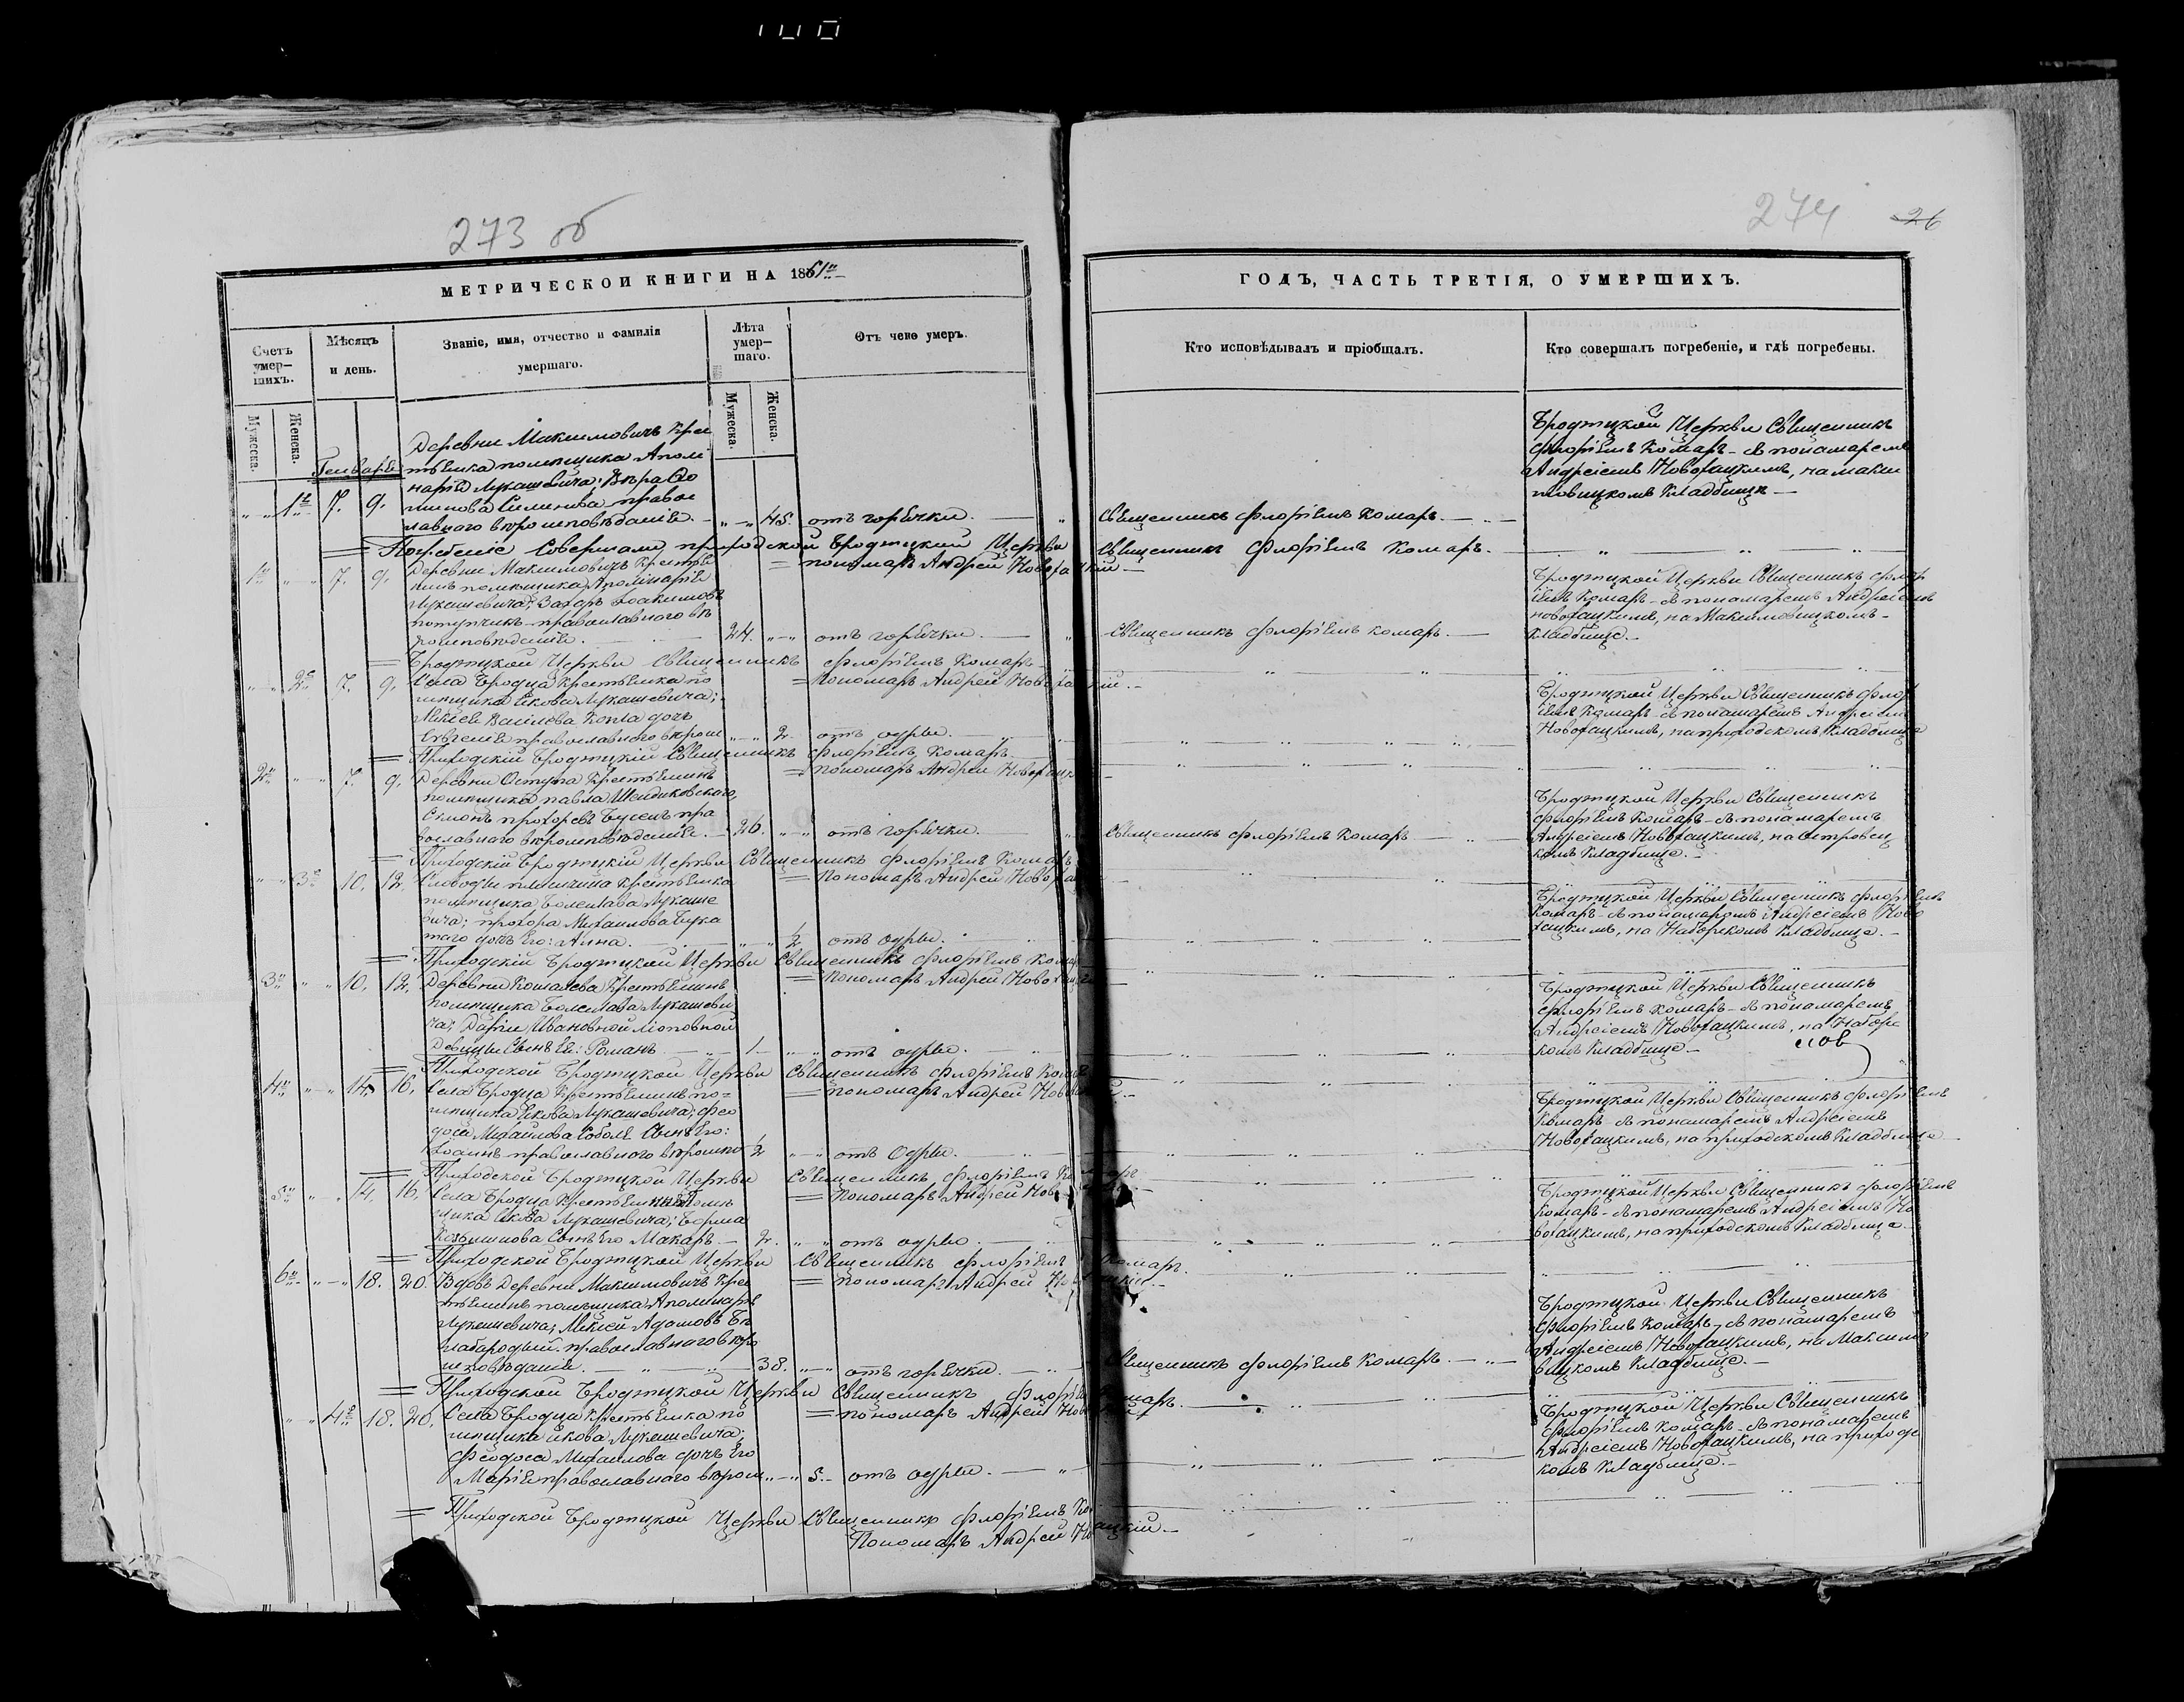 273 об
МЕТРИЧЕСКОЙ КНИГИ НА 1861й
Счетъ умер-шихъ.
Мѣсяцъ и день.
Званіе, имя, отчество и фамилія умершаго.
Лѣта умер-шаго.
Отъ чего умеръ.
Мужеска.
Женска.
Мужеска.
Женска.
Генваря
Деревни Максимовичъ Крес
тьянка помѣщика Аполи
нарія Лукашевича; Вѣра
правос
лавного вѣроисповѣданія.
1я 7. 9. 45. отъ горячки.
Погребеніе Совершали приходской Бродницкой Церкви Священникъ Флоріянъ Комаръ.
пономаръ Андрей Новохацкій
1й 7. 9. Деревни Максимовичъ Кресть
янинъ помѣщика Аполинарія
Лукашевича; Захаръ Іоакимовъ
православного вѣ
роисповѣданія. 24. отъ горячки.
Бродницкой Церкви Священникъ Флоріянъ Комаръ
Пономаръ Андрей Новохацкій.
2я 7. 9. Села Бродца Крестьянка по
мѣщика Якова Лукашевича;
Василева дочь
Евгенія православного вѣроис 2 отъ одры.
Приходскій Бродницкій Священникъ Флоріянъ Комаръ
пономаръ Андрей Новохацк
2й 7. 9. Деревни Острова Крестьянинъ
помѣщика павла
пра
вославного вѣроисповѣданія. 26. отъ горячки.
Приходскій Бродницкій Церкви Священникъ Флоріянъ Комаръ
Пономаръ Андрей Новоха
3я 10. 12. Слободы Крестьянка
помѣщика Болеслава Лукаше
вича; прохора Михаилова
дочь Его: Анна. 1/2 отъ одры.
Приходскій Бродницкой Церкви Священникъ Флоріянъ Комар
Пономаръ Андрей Новохацкі
3й 10. 12. Деревни Кошалева Крестьянинъ
помѣщика Болеслава Лукашеви
ча; Даріи Ивановной
Девицы Сынъ Ея: Романъ 1 отъ одры.
Приходской Бродницкой Церкви Священникъ Флоріянъ Комар
пономаръ Андрей Новох
4й 14. 16. Села Бродца Крестьянинъ по=
мѣщика Якова Лукашевича; Фео
досій Михаилова Соболя Сынъ Его:
Іоаннъ православного вѣроиспо 1/2 отъ Одры.
Приходской Бродницкой Церкви Священникъ Флоріянъ Комаръ
Пономаръ Андрей Нов
5й 14. 16. Села Бродца Крестьянинъ помѣ
щика Якова Лукашевича;
Сынъ Его Макаръ 2. отъ одры.
Приходской Бродницкой Церкви Священникъ Флоріянъ Комаръ.
пономаръ Андрей Новохацкій.
6й 18. 20. Вдовъ Деревни Максимовичъ Крес
тьянинъ помѣщика Аполинарія
Лукашевича; Адамовъ
православного вѣро
исповѣданія. 38. отъ горячки.
Приходской Бродницкой Церкви Священникъ Флоріянъ Комаръ.
пономаръ Андрей Нов
4я 18. 20. Села Бродца Крестьянка по
мѣщика Якова Лукашевича;
Феодоса Михаилова дочь Его
Марія православного вѣроис 5. отъ одры.
Приходской Бродницкой Церкви Священникъ Флоріянъ Ко
Пономаръ Андрей Новохацкій.
274
26
ГОДЪ, ЧАСТЬ ТРЕТІЯ, О УМЕРШИХЪ.
Кто исповѣдывалъ и пріобщалъ.
Кто совершалъ погребеніе, и гдѣ погребены.
Священникъ Флоріянъ Комаръ.
Бродницкой Церкви Священникъ
Флоріянъ Комаръ съ понамаремъ
Андреіемъ Новохацкимъ, на Макси
мовицкомъ Кладбищѣ
Священникъ Флоріянъ Комаръ.
Бродницкой Церкви Священникъ Флор
іянъ Комаръ съ понамаремъ Андреіемъ
новохацкимъ, на Максимовицкомъ
Кладбище.
Бродницкой Церкви Священникъ Флор
іянъ Комаръ съ понамаремъ Андреіемъ
Новохацкимъ, на приходскомъ Кладбище
Священникъ Флоріянъ Комаръ
Бродницкой Церкви Священникъ
Флоріянъ Комаръ съ понамаремъ
Андреіемъ Новохацкимъ, на Островец
комъ Кладбище.
Бродницкой Церкви Священникъ Флоріянъ
Комаръ съ понамаремъ Андреіемъ Ново
хацкимъ, на Кладбище.
Бродницкой Церкви Священникъ
Флоріянъ Комаръ съ понамаремъ
Андреіемъ Новохацкимъ, на
комъ Кладбище
Бродницкой Церкви Священникъ Флоріянъ
Комаръ съ понамаремъ Андреіемъ
Новохацкимъ, на приходскомъ Кладбище
Бродницкой Церкви Священникъ Флоріянъ
Комаръ съ понамаремъ Андреіемъ Но
вохацкимъ, на приходскомъ Кладбище.
Священникъ Флоріянъ Комаръ.
Бродницкой Церкви Священникъ
Флоріянъ Комаръ съ понамаремъ
Андреіемъ Новохацкимъ, на Максимо
вицкомъ Кладбище.
Бродницкой Церкви Священникъ
Флоріянъ Комаръ съ понамаремъ
Андреіемъ Новохацкимъ, на приходс
комъ Кладбище.